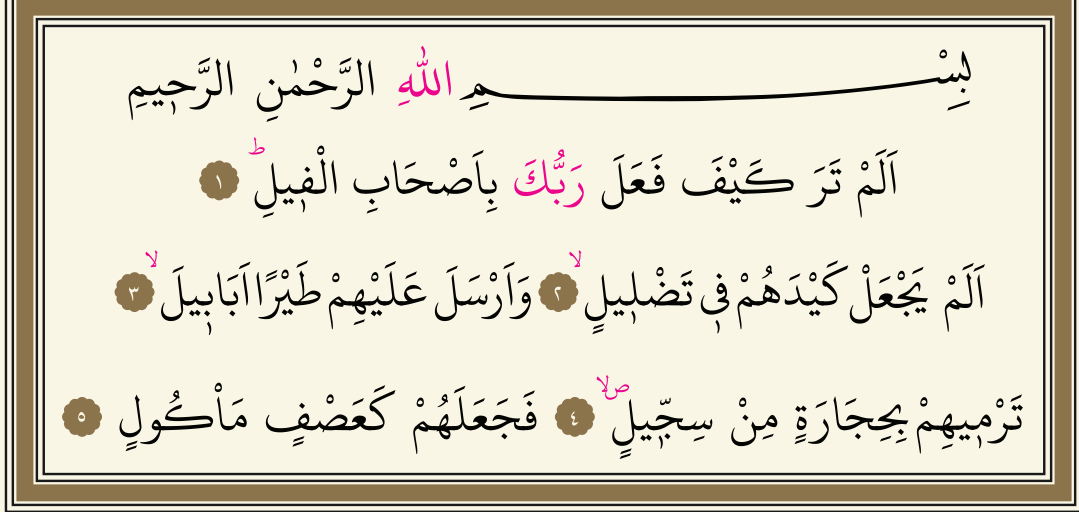 بِسْمِ اللّٰهِ الرَّحْمٰنِ الرَّحٖيمِ
اَلَمْ تَرَ كَيْفَ فَعَلَ رَبُّكَ بِاَصْحَابِ الْفٖيلِؕ ١
اَلَمْ يَجْعَلْ كَيْدَهُمْ فٖى تَضْلٖيلٍۙ ٢ وَاَرْسَلَ عَلَيْهِمْ طَيْرًا اَبَابٖيلَۙ ٣
تَرْمٖيهِمْ بِحِجَارَةٍ مِنْ سِجّٖيلٍۙۖ ٤ فَجَعَلَهُمْ كَعَصْفٍ مَاْكُولٍ ٥